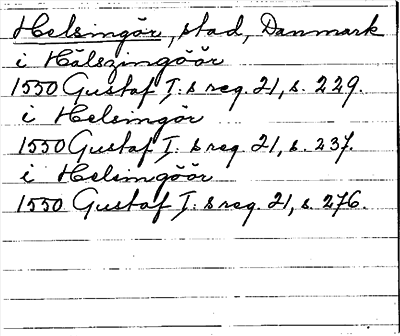 Helsingör, stad, Danmark
i Hälszingöör
1550 Gustaf I:s reg. 21, s. 229.
i Helsingör
1550 Gustaf I:s reg. 21, s. 237.
i Helsingöör
1550 Gustaf I:s reg. 21, s. 276.